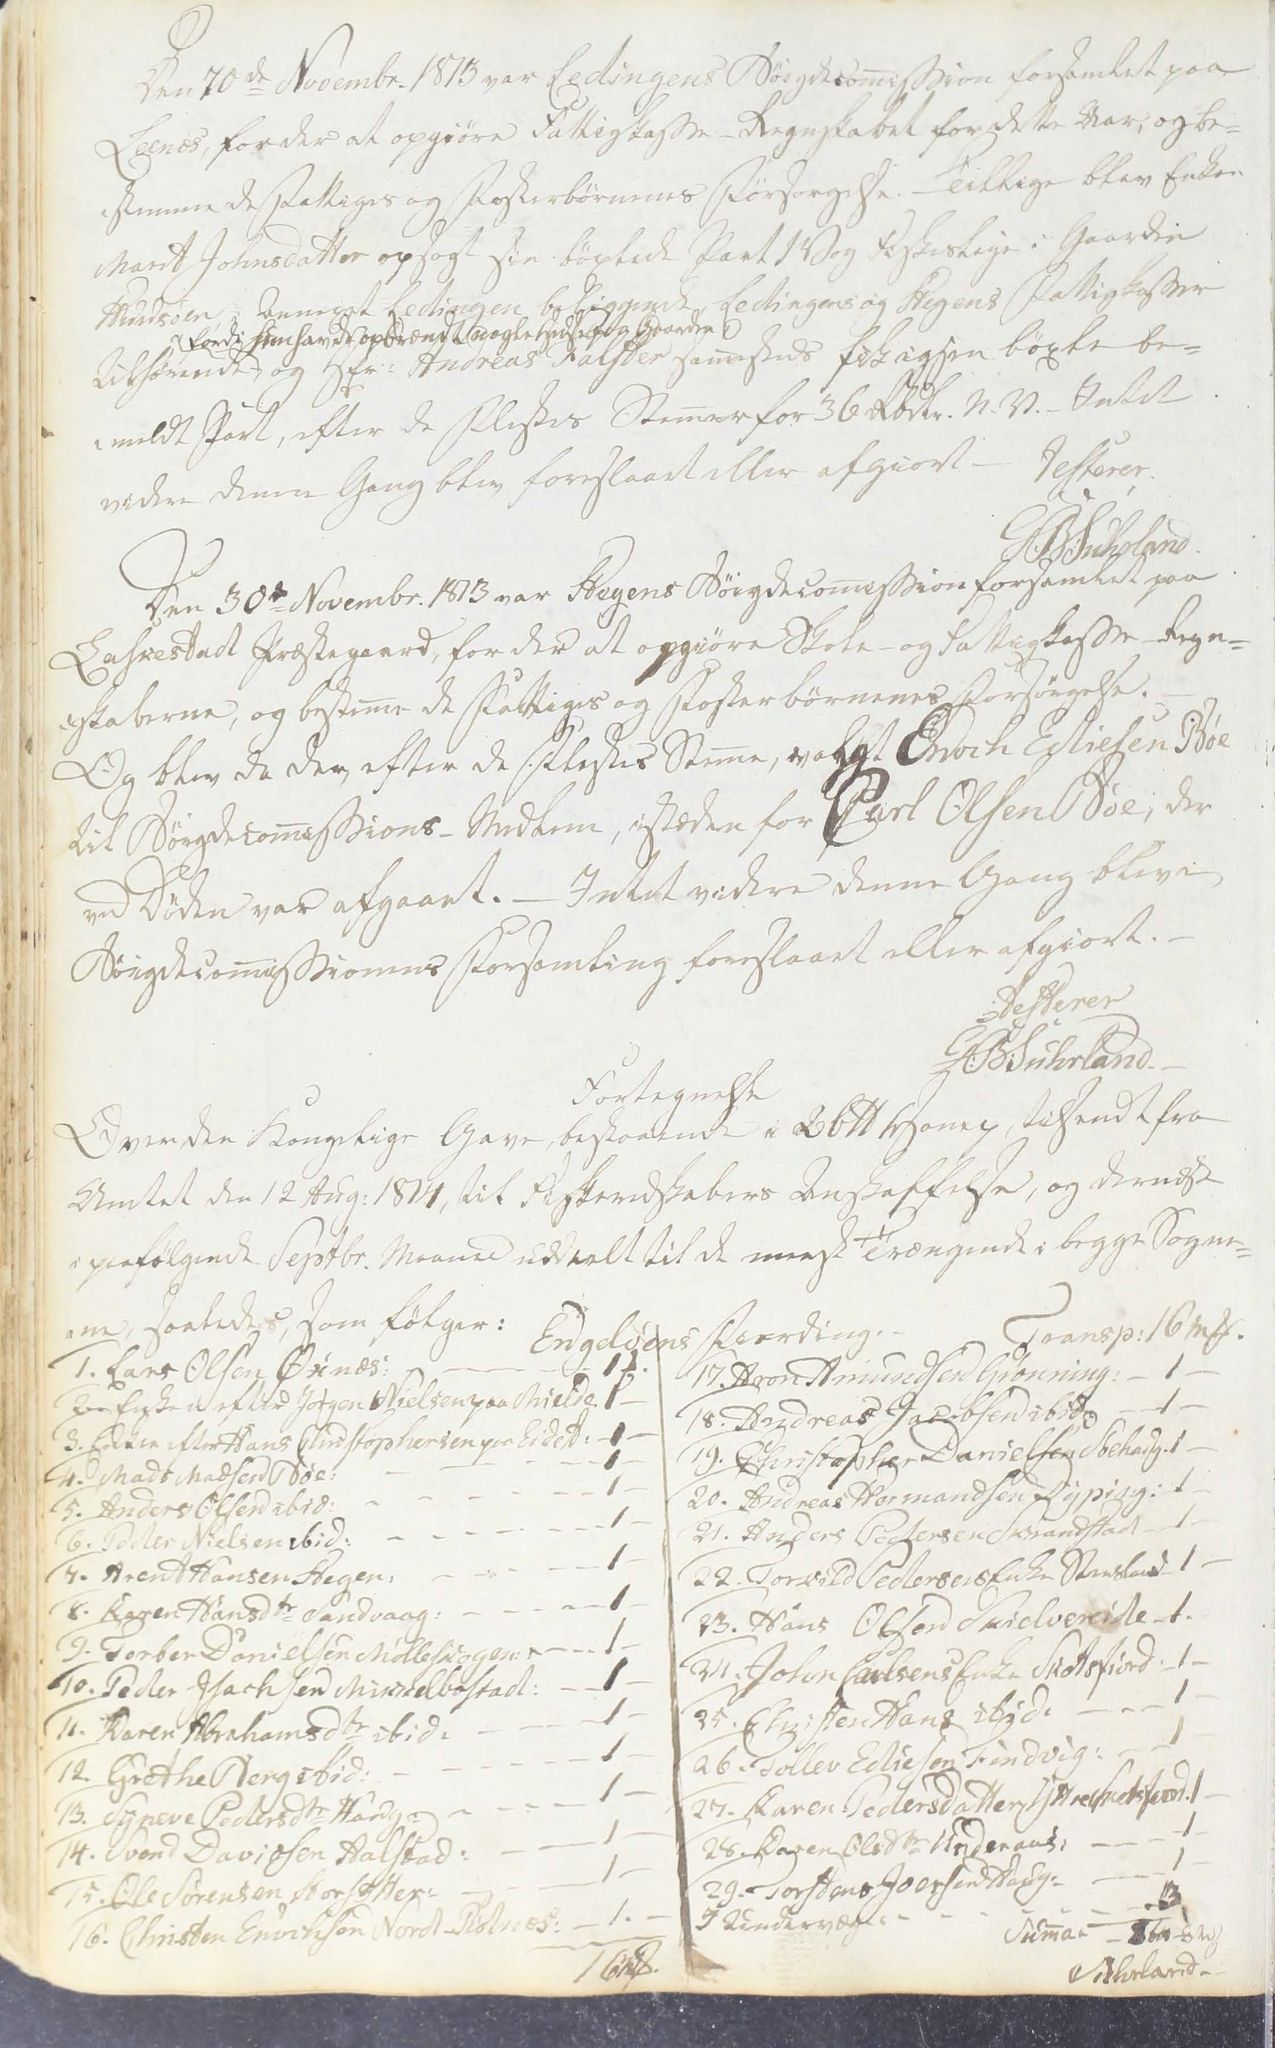 Den 10de Novembr. 1813 var Ledingens Böigdecommission forsamlet paa
Leenæs, for der at opgiöre Fattigkasse-Regnskabet for dette Aar, og be-
stemme de Fattiges og Fosterbörnenes Forsörgelse. - Tillige blev Enken
Marit Johnsdatter opsagt sin böxlede Part 1 Vog Fiskeleje i Gaarden
i Annexet Ledingen beliggende, Ledingens og Hegens Fattigkasser
(fordi hun havde opbrændt nogle Huse paa Gaarden)
tilhörende, og Hr: Andreas Falster sammesteds fik igjen böxle be-
meldt Part, efter de Flestes Stemmer for 36 Rbdlr. N. V. - Intet
videre denne Gang blev foreslaaet eller afgiort -
Testerer.
GB: Suhrland.
Den 30te Novembr. 1813 var Hegens Böigdecommission forsamlet paa
Præstegaard, for der at opgiöre Skole- og Fattigkasse-Regn-
skaberne, og bestemme de Fattiges og Fosterbörnenes Forsörgelse. -
Og blev da der, efter de Flestes Stemme, valgt Enoch Eliesen Böe
til Böigdecommissions-Medlem, istæden for Carl Olsen Böe, der
ved Döden var afgaaet. - Intet videre denne Gang blev i
Böigdecommissionens Forsamling foreslaaet eller afgiort. -
Testerer
GB: Suhrland. -
Fortegnelse
Over den Kongelige Gave, bestaaende i Hamp, tilsendt fra
Amtet den 12 Aug: 1814, til Fiskeredskabers Anskaffelse, og dernæst
i paafölgende Septbr. Maaned uddeelt til de meest Trængende i begge Sogne-
ne, saaledes, som fölger:
Engelöens Fierding. -
1. Lars Olsen Öxnæs: - 1
2. Enken efter Jörgen Nielsen paa 1 -
3. Enken efter Hans Christophersen paa Eidet: - 1 -
4. Mads Madsen Böe: - 1 -
5. Anders Olsen ibid: - 1 -
6. Peder Nielsen ibid: - 1 -
7. Arent Hansen Stegen: - 1 -
8. Karen Hansdtr Sandvaag: - 1 -
9. Torber Danielsen Mölleskogen: - 1 -
10. Peder Isachsen Mikkelbostad: - 1 -
11. Karen Abrahamsdtr ibid: - 1 -
12. Grethe Berg ibid: - 1 -
13. Synneve Pedersdtr Haug: - 1 -
14. Svend Davidsen Aalstad: - 1 -
15. Ole Sörensen - 1 -
16. Christen Enochsen Nord - 1. -
16
Transp: 16
17. Aron Amundsen Grönning: - 1 -
18. Andreas Jacobsen ibid - 1 -
19. Christopher Danielsen 1 -
20. Andreas Hermandsen Ryping: - 1 -
21. Anders Pedersen Strandstad - 1 -
22. Pedersens Enke 1 -
23. Hans Olsen - 1.
24. John Carlsens Enke Skotsfiord: - 1 -
25. Christen Hans ibid: - 1 -
26. Tollev Eliesen Findvig: - 1
27. Karen Pedersdatter 1 -
28. Karen Olsdtr - 1 -
29. Torstens Haug: - 1 -
I Undervægt: -
Summa
Suhrland -